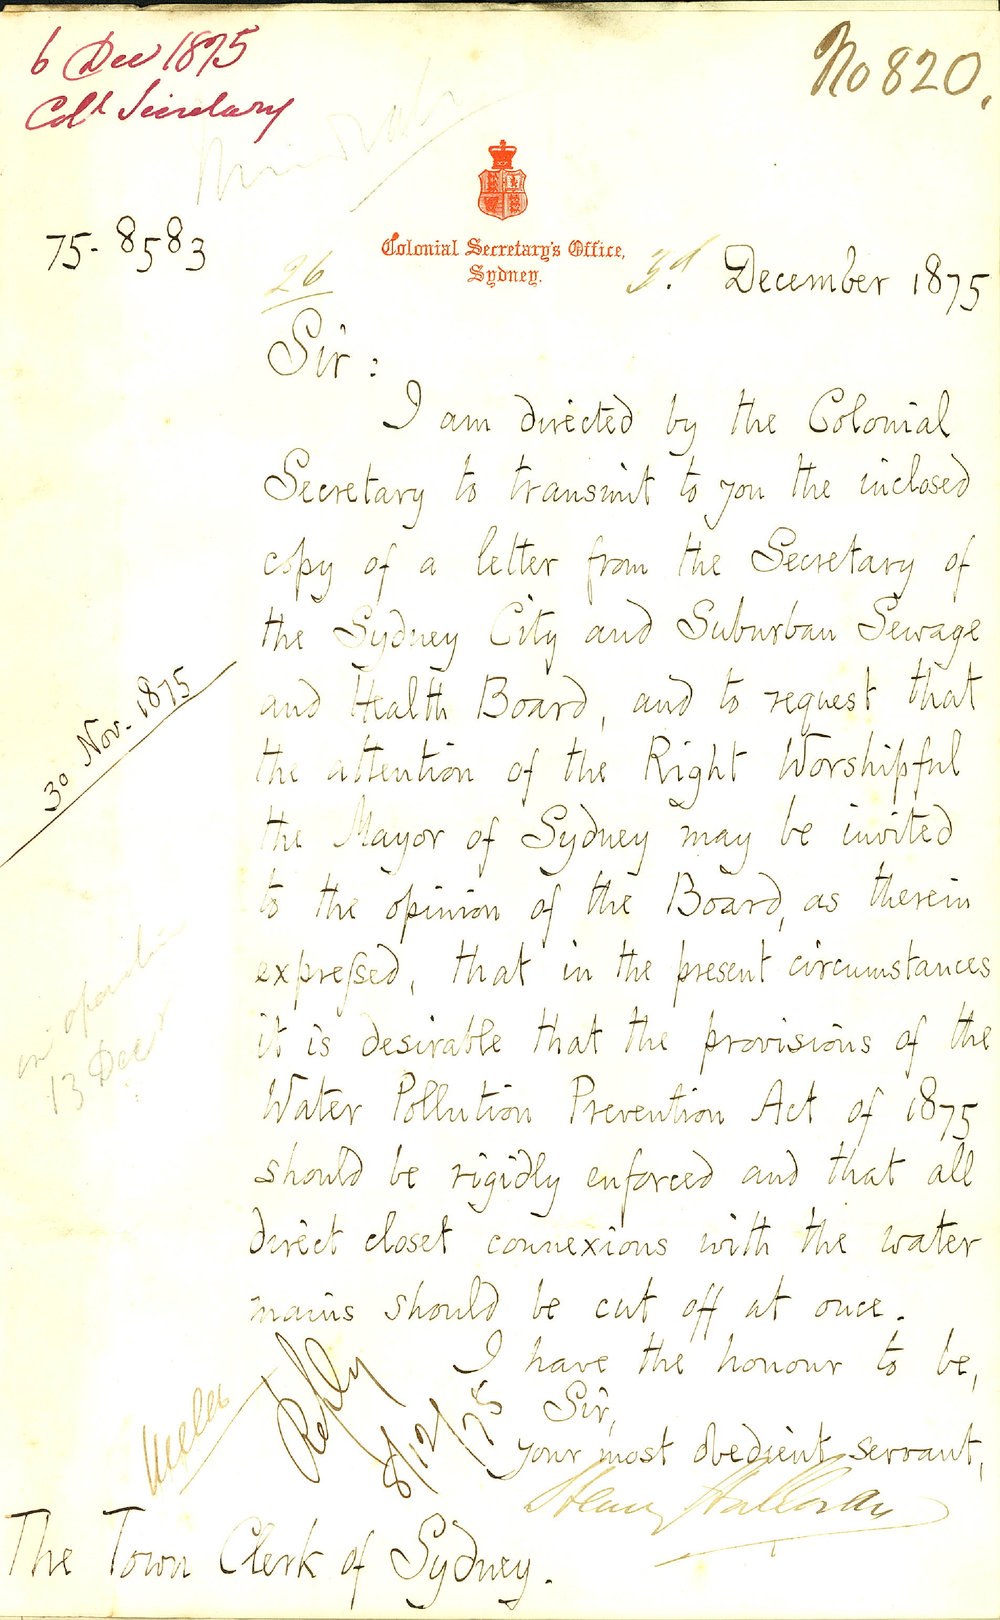 6 Dec 1875
Col<sup>l</sup> Secretary
No 820.
75-8583
Colonial Secretary's Office,
Sydney.
26
3.d December 1875
Sir:
I am directed by the Colonial
Secretary to transmit to you the inclosed
copy of a letter from the Secretary of
the Sydney City and Suburban Sewage
and Health Board, and to request that
30 Nov. 1875
the attention of the Right Worshipful
the Mayor of Sydney may be invited
to the opinion of the Board, as therein
expreſsed, that in the present circumstances
it is desirable that the provisions of the
13 Dec
Water Pollution Prevention Act of 1875
should be rigidly enforced and that all
direct closet connexions with the water
mains should be cut off at once.
I have the honour to be,
Sir,
Your most obedient servant,
Henry Halloran
Reply
8/12/75
The Town Clerk of Sydney.